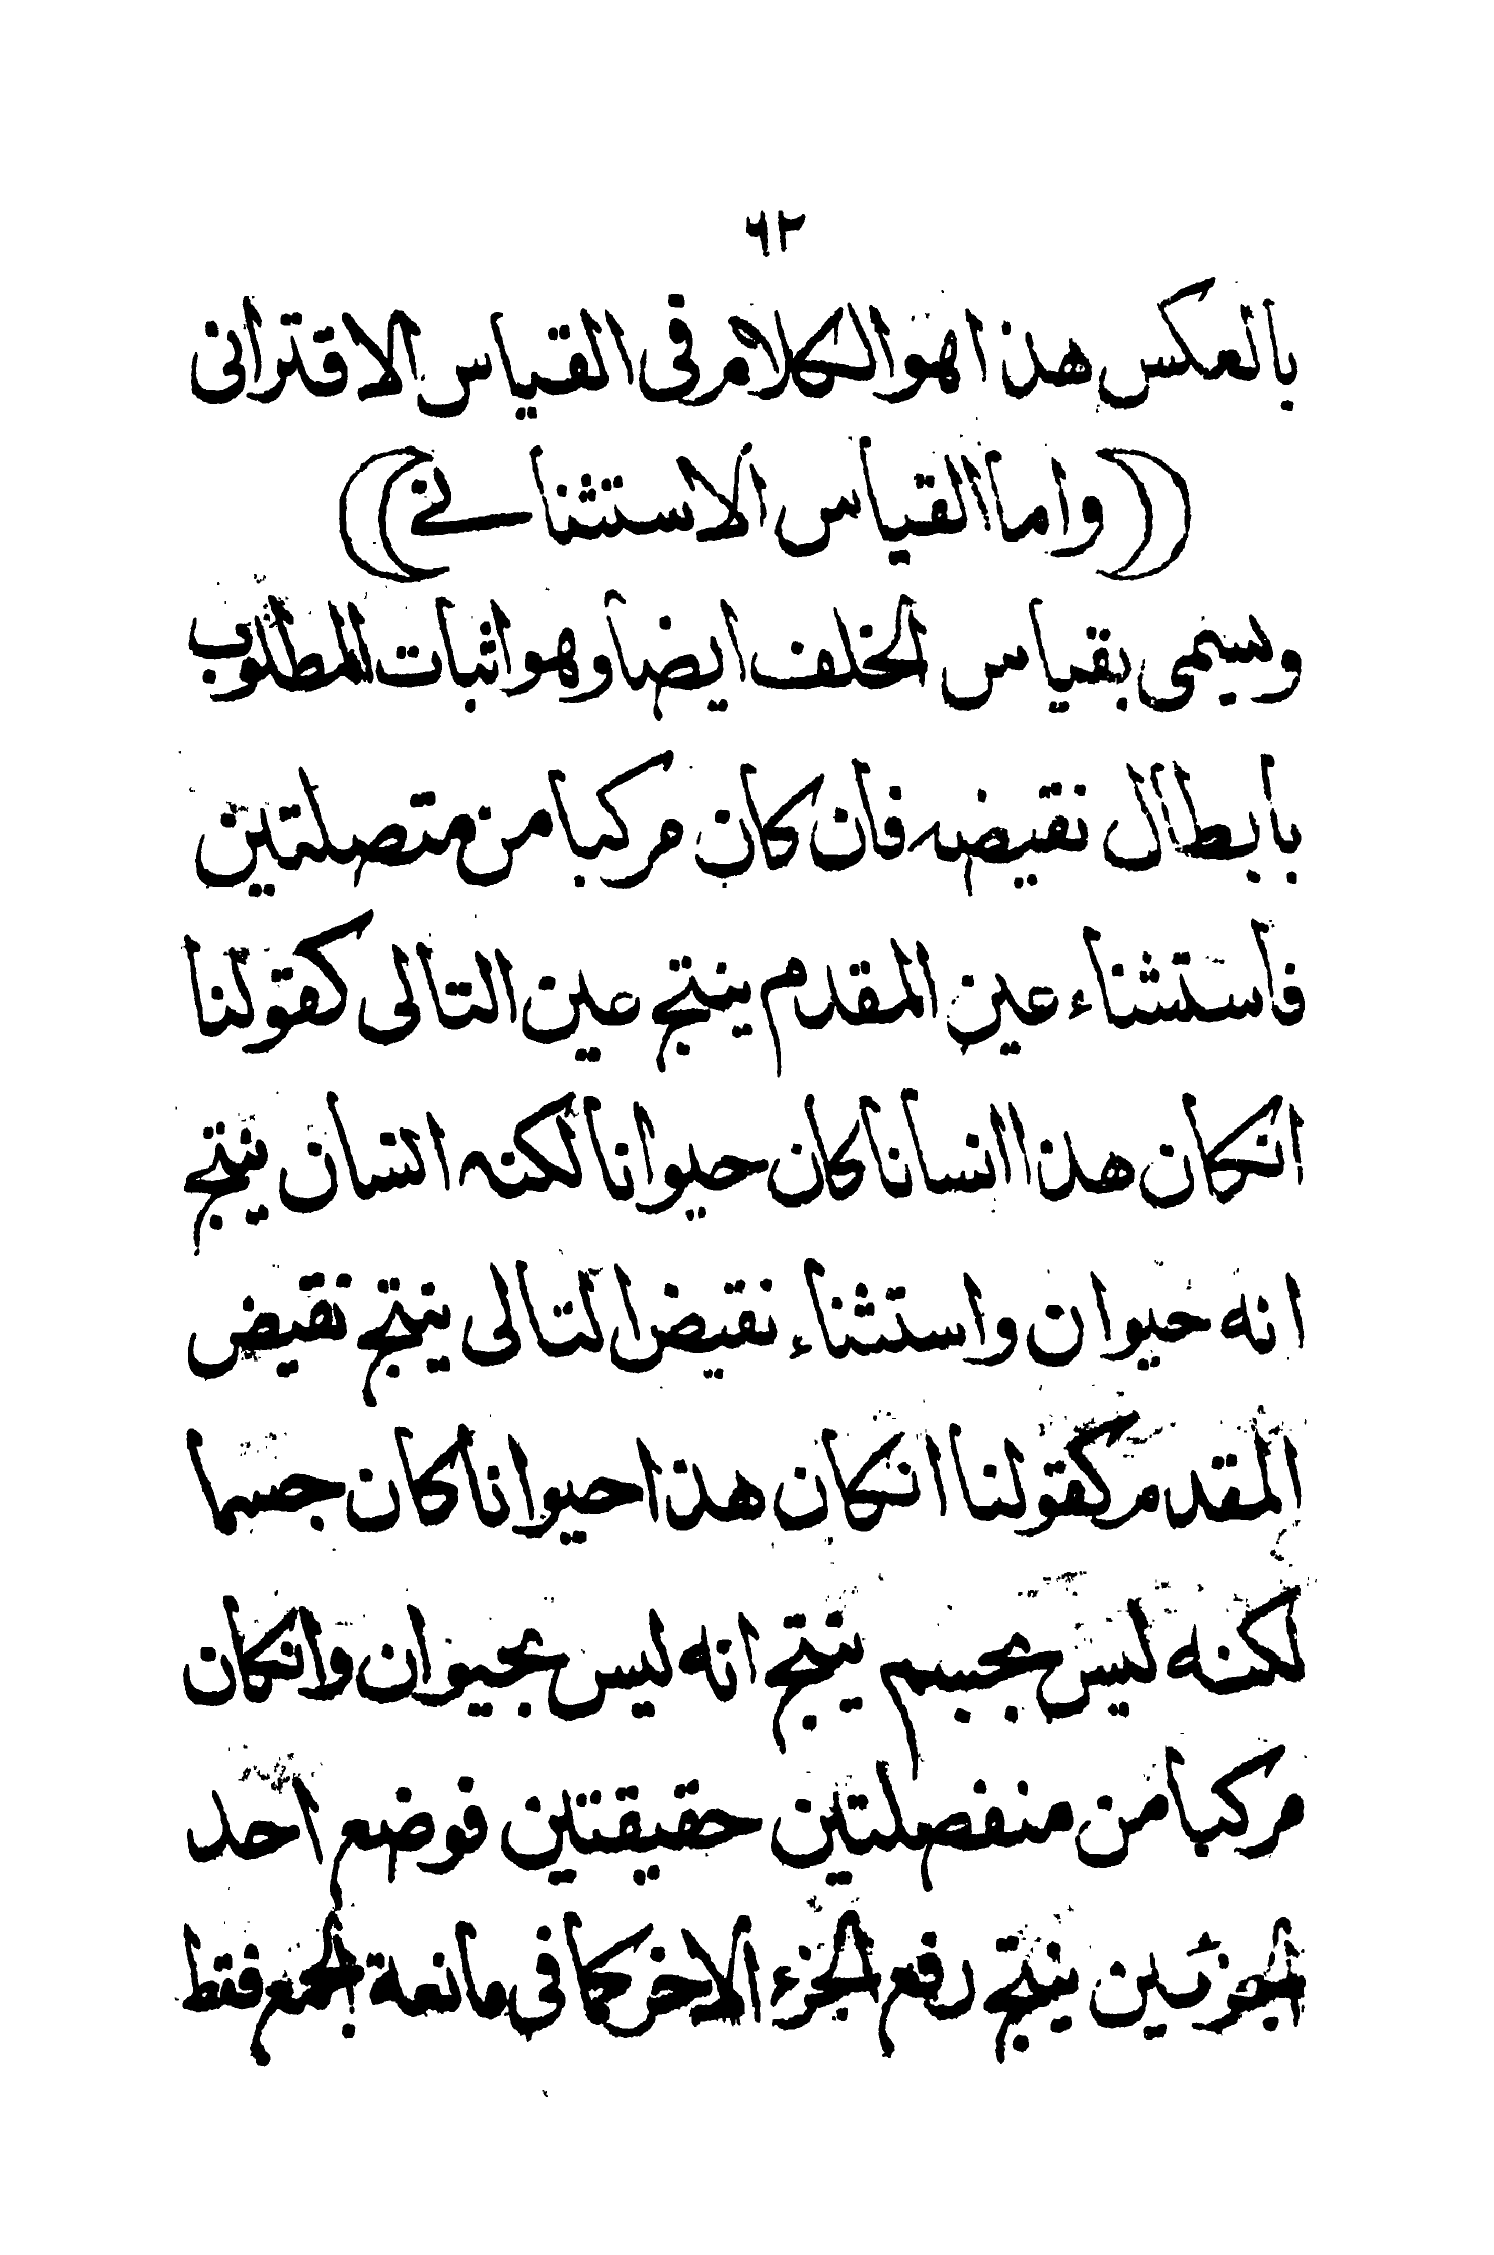 ٦٢
بالعكس هذا هو الكلام فى القياس الاقترانى
(( واما القياس الاستثنائى ))
ويسمى بقياس الخلف ايضا وهو اثبات المطلوب
بابطال نقيضه فان كان مركبا من متصلتين
فاستثناء عين المقدم ينتج عين التالى كقولنا
انكان هذا انسانا كان حيوانا لكنه انسان ينتج
انه حيوان واستثناء نقيض التالى ينتج نقيض
المقدم كقولنا انكان هذا حيوانا كان جسما
لكنه ليس بجسم ينتج انه ليس بحيوان وانكان
مركبا من منفصلتين حقيقتين فوضع احد
الجزئين ينتج رفع الجزء الاخر كما فى مانعة الجمع فقط